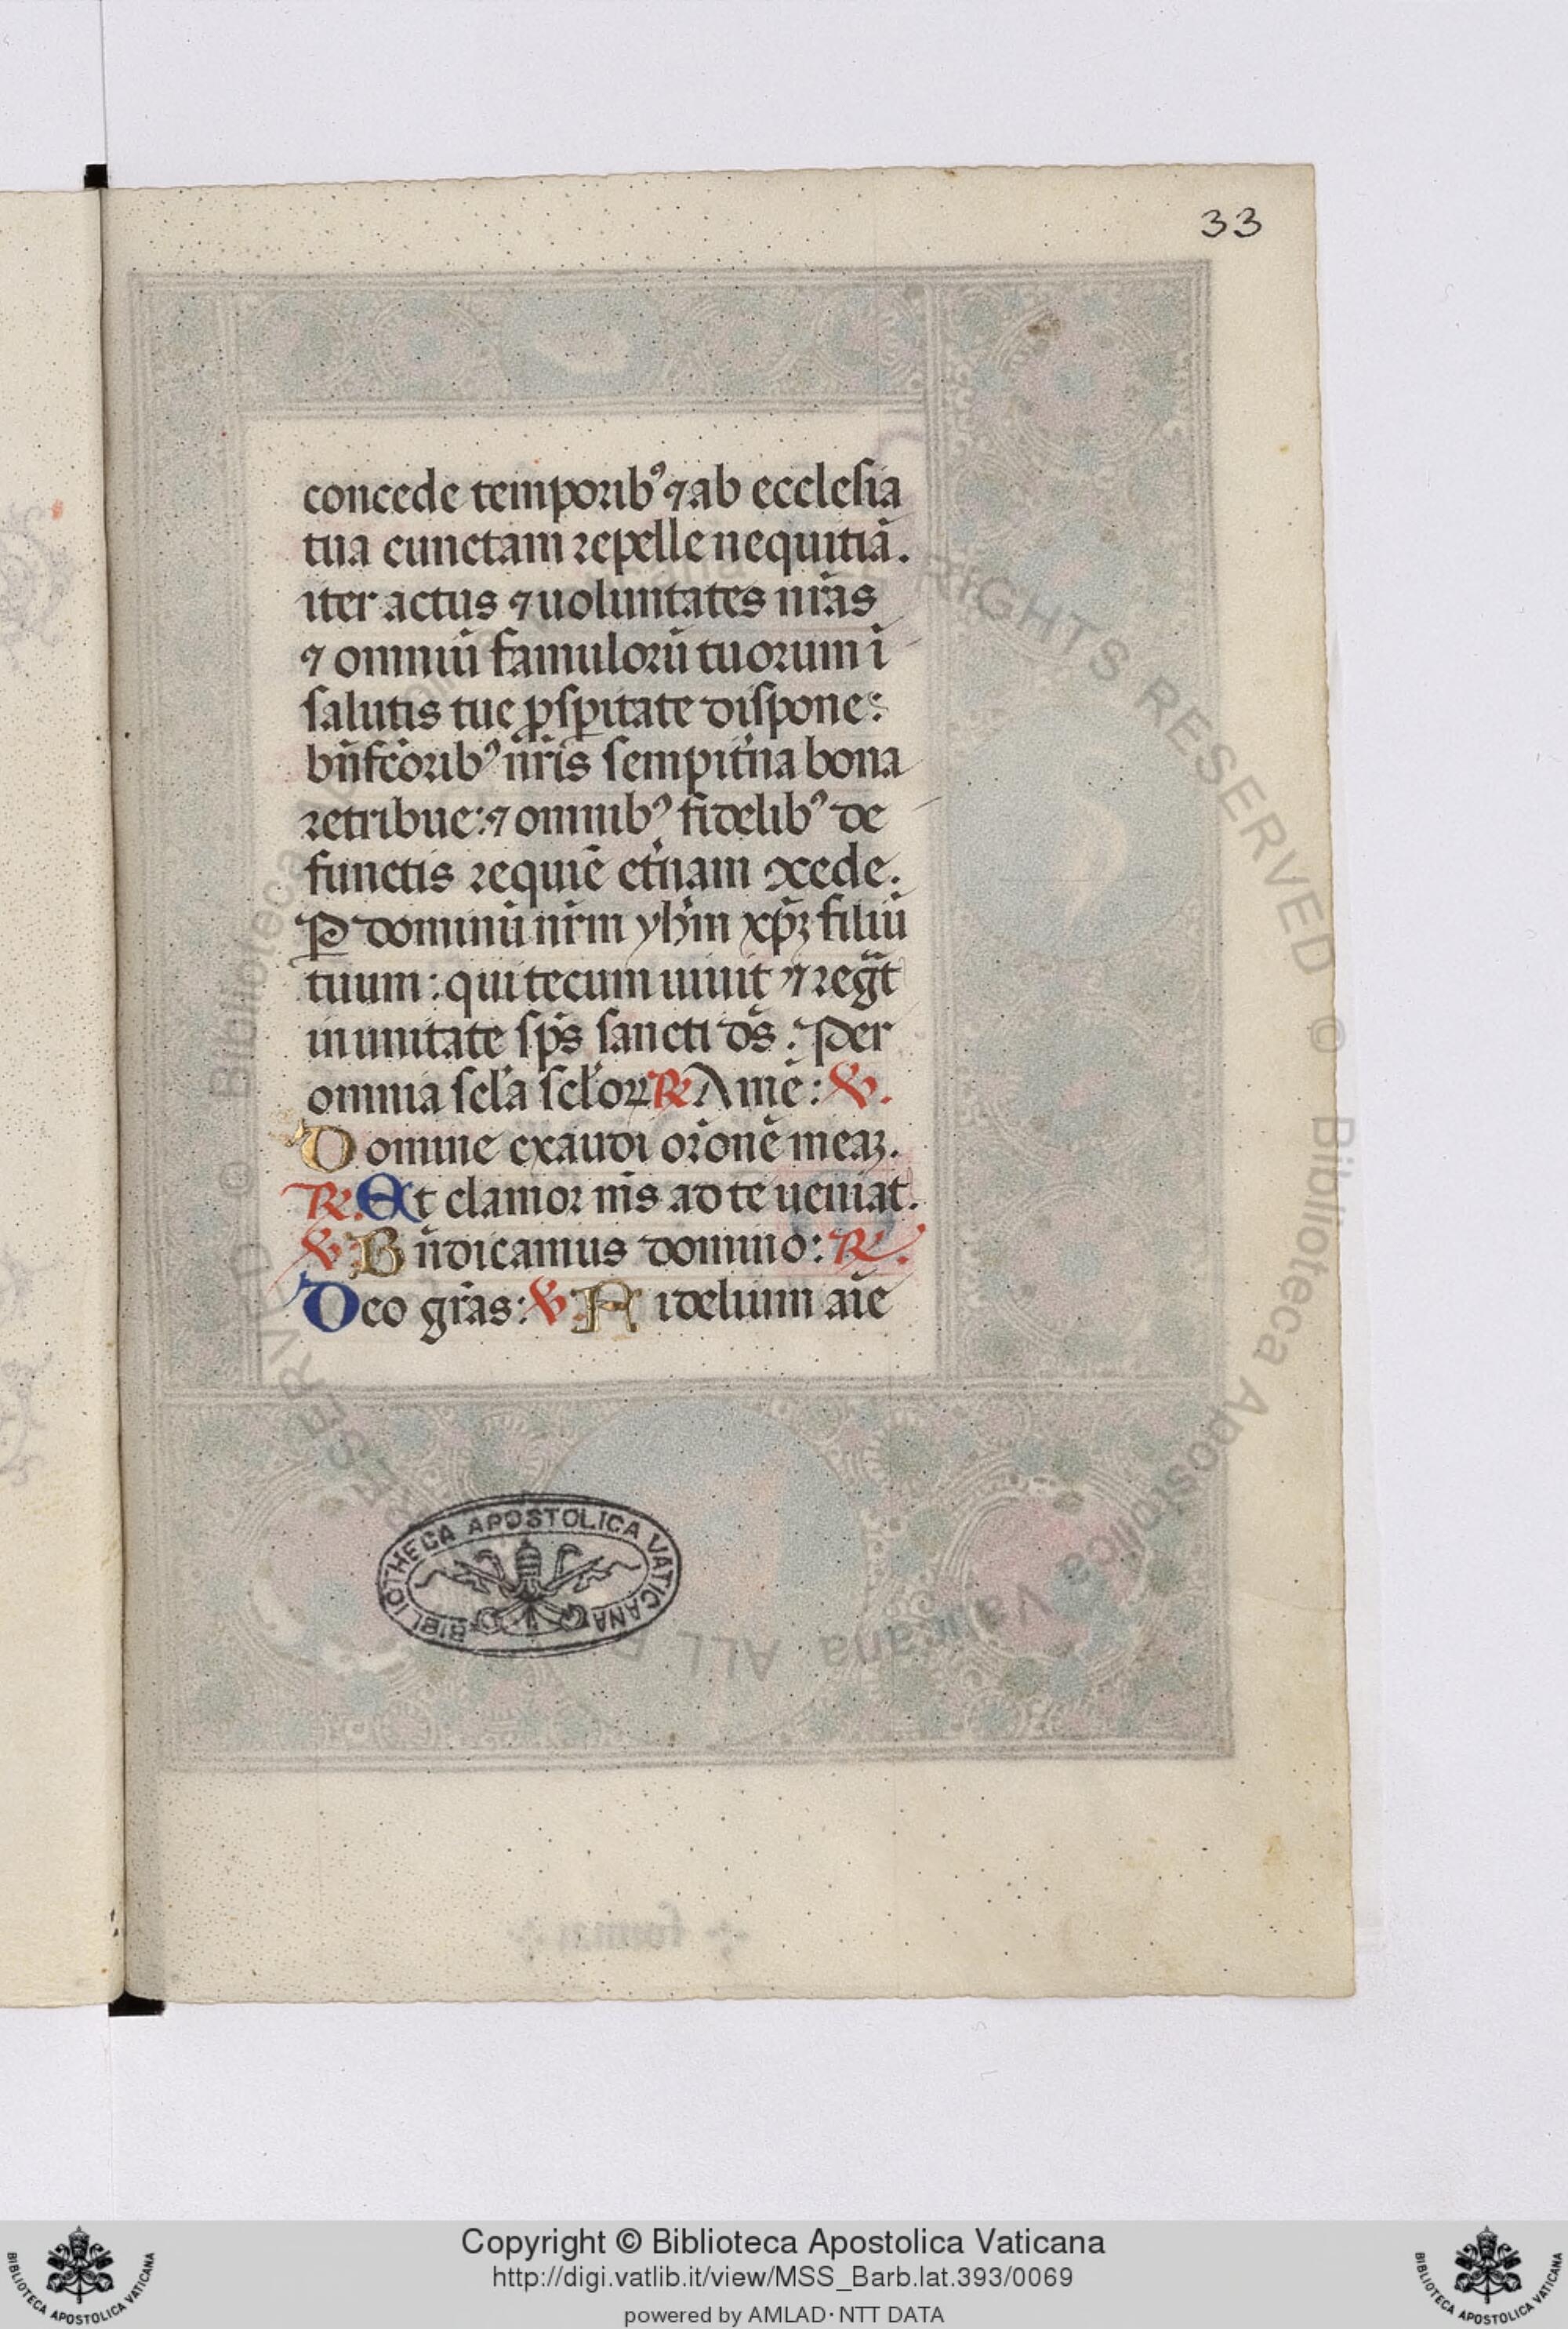 33
concede temporibꝰ ⁊ ab ecclesia
tua cunctam repelle nequitiā.
iter actus ⁊ uoluntates nr̄as
⁊ omniū famulorū tuorum ī
salutis tue ꝓsꝑitate dispone:
bn̄fc̄oribꝰ nr̄is sempit̄na bona
retribue: ⁊ omnibꝰ fidelibꝰ de
functis requiē et̄nam ꝯcede.
Ꝑ dominū nr̄m yh̄m xp̄ꝫ filiū
tuum: qui tecum uiuit ⁊ regt̄
in unitate sp̄s sancti ds̄. Per
omnia scl̄a scl̄oꝝ ℟ Amē: ℣.
Domine exaudi or̄onē meaꝫ.
℟. Et clamor m̄s ad te ueniat.
℣ Bn̄dicamus domino: ℟.
Deo gr̄as: ℣ Fidelium aīe
BIBLIOTHECA APOSTOLICA VATICANA
© Biblioteca Apostolica Vaticana ALL RIGHTS RESERVED
Copyright © Biblioteca Apostolica Vaticana
http://digi.vatlib.it/view/MSS_Barb.lat.393/0069
powered by AMLAD·NTT DATA
BIBLIOTECA APOSTOLICA VATICANA
BIBLIOTECA APOSTOLICA VATICANA